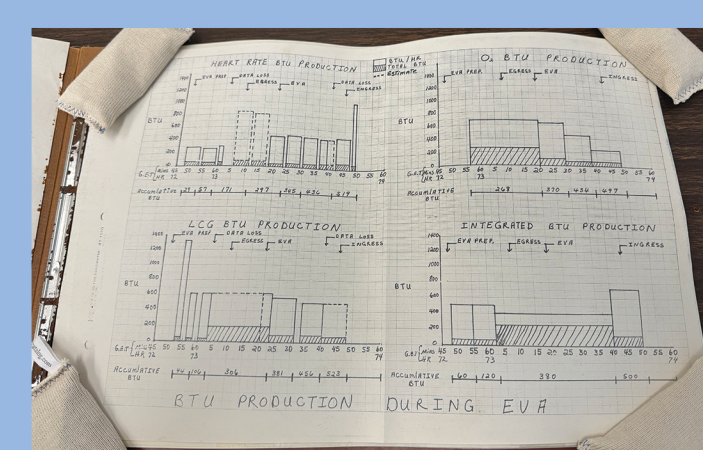 HEART RATE BTU PRODUCTION
BTU/HR
TOTAL BTU
Estimate
EVA PREP
DATA LOSS
EGRESS
EVA
DATA LOSS
INGRESS
1400
1200
1000
800
600
400
200
0
BTU
G.E.T. {Mins 45 50 55 60 5 10 15 20 25 30 35 40 45 50 55 60
HR 72 73 74
Accumulative BTU
171 297 365 436 519
O₂ BTU PRODUCTION
EVA PREP.
EGRESS
EVA
INGRESS
1400
1200
1000
800
600
400
200
0
BTU
G.E.T. {Mins 45 50 55 60 5 10 15 20 25 30 35 40 45 50 55 60
HR 72 73 74
ACCUMULATIVE BTU
268 370 436 497
LCG BTU PRODUCTION
EVA PREP
DATA LOSS
EGRESS
EVA
DATA LOSS
INGRESS
1400
1200
1000
800
600
400
200
0
BTU
G.E.T. {Mins 45 50 55 60 5 10 15 20 25 30 35 40 45 50 55 60
HR 72 73 74
ACCUMULATIVE BTU
306 381 456 523
INTEGRATED BTU PRODUCTION
EVA PREP.
EGRESS
EVA
INGRESS
1400
1200
1000
800
600
400
200
0
BTU
G.E.T. {Mins 45 50 55 60 5 10 15 20 25 30 35 40 45 50 55 60
HR 72 73 74
ACCUMULATIVE BTU
60 120 380 500
BTU PRODUCTION DURING EVA